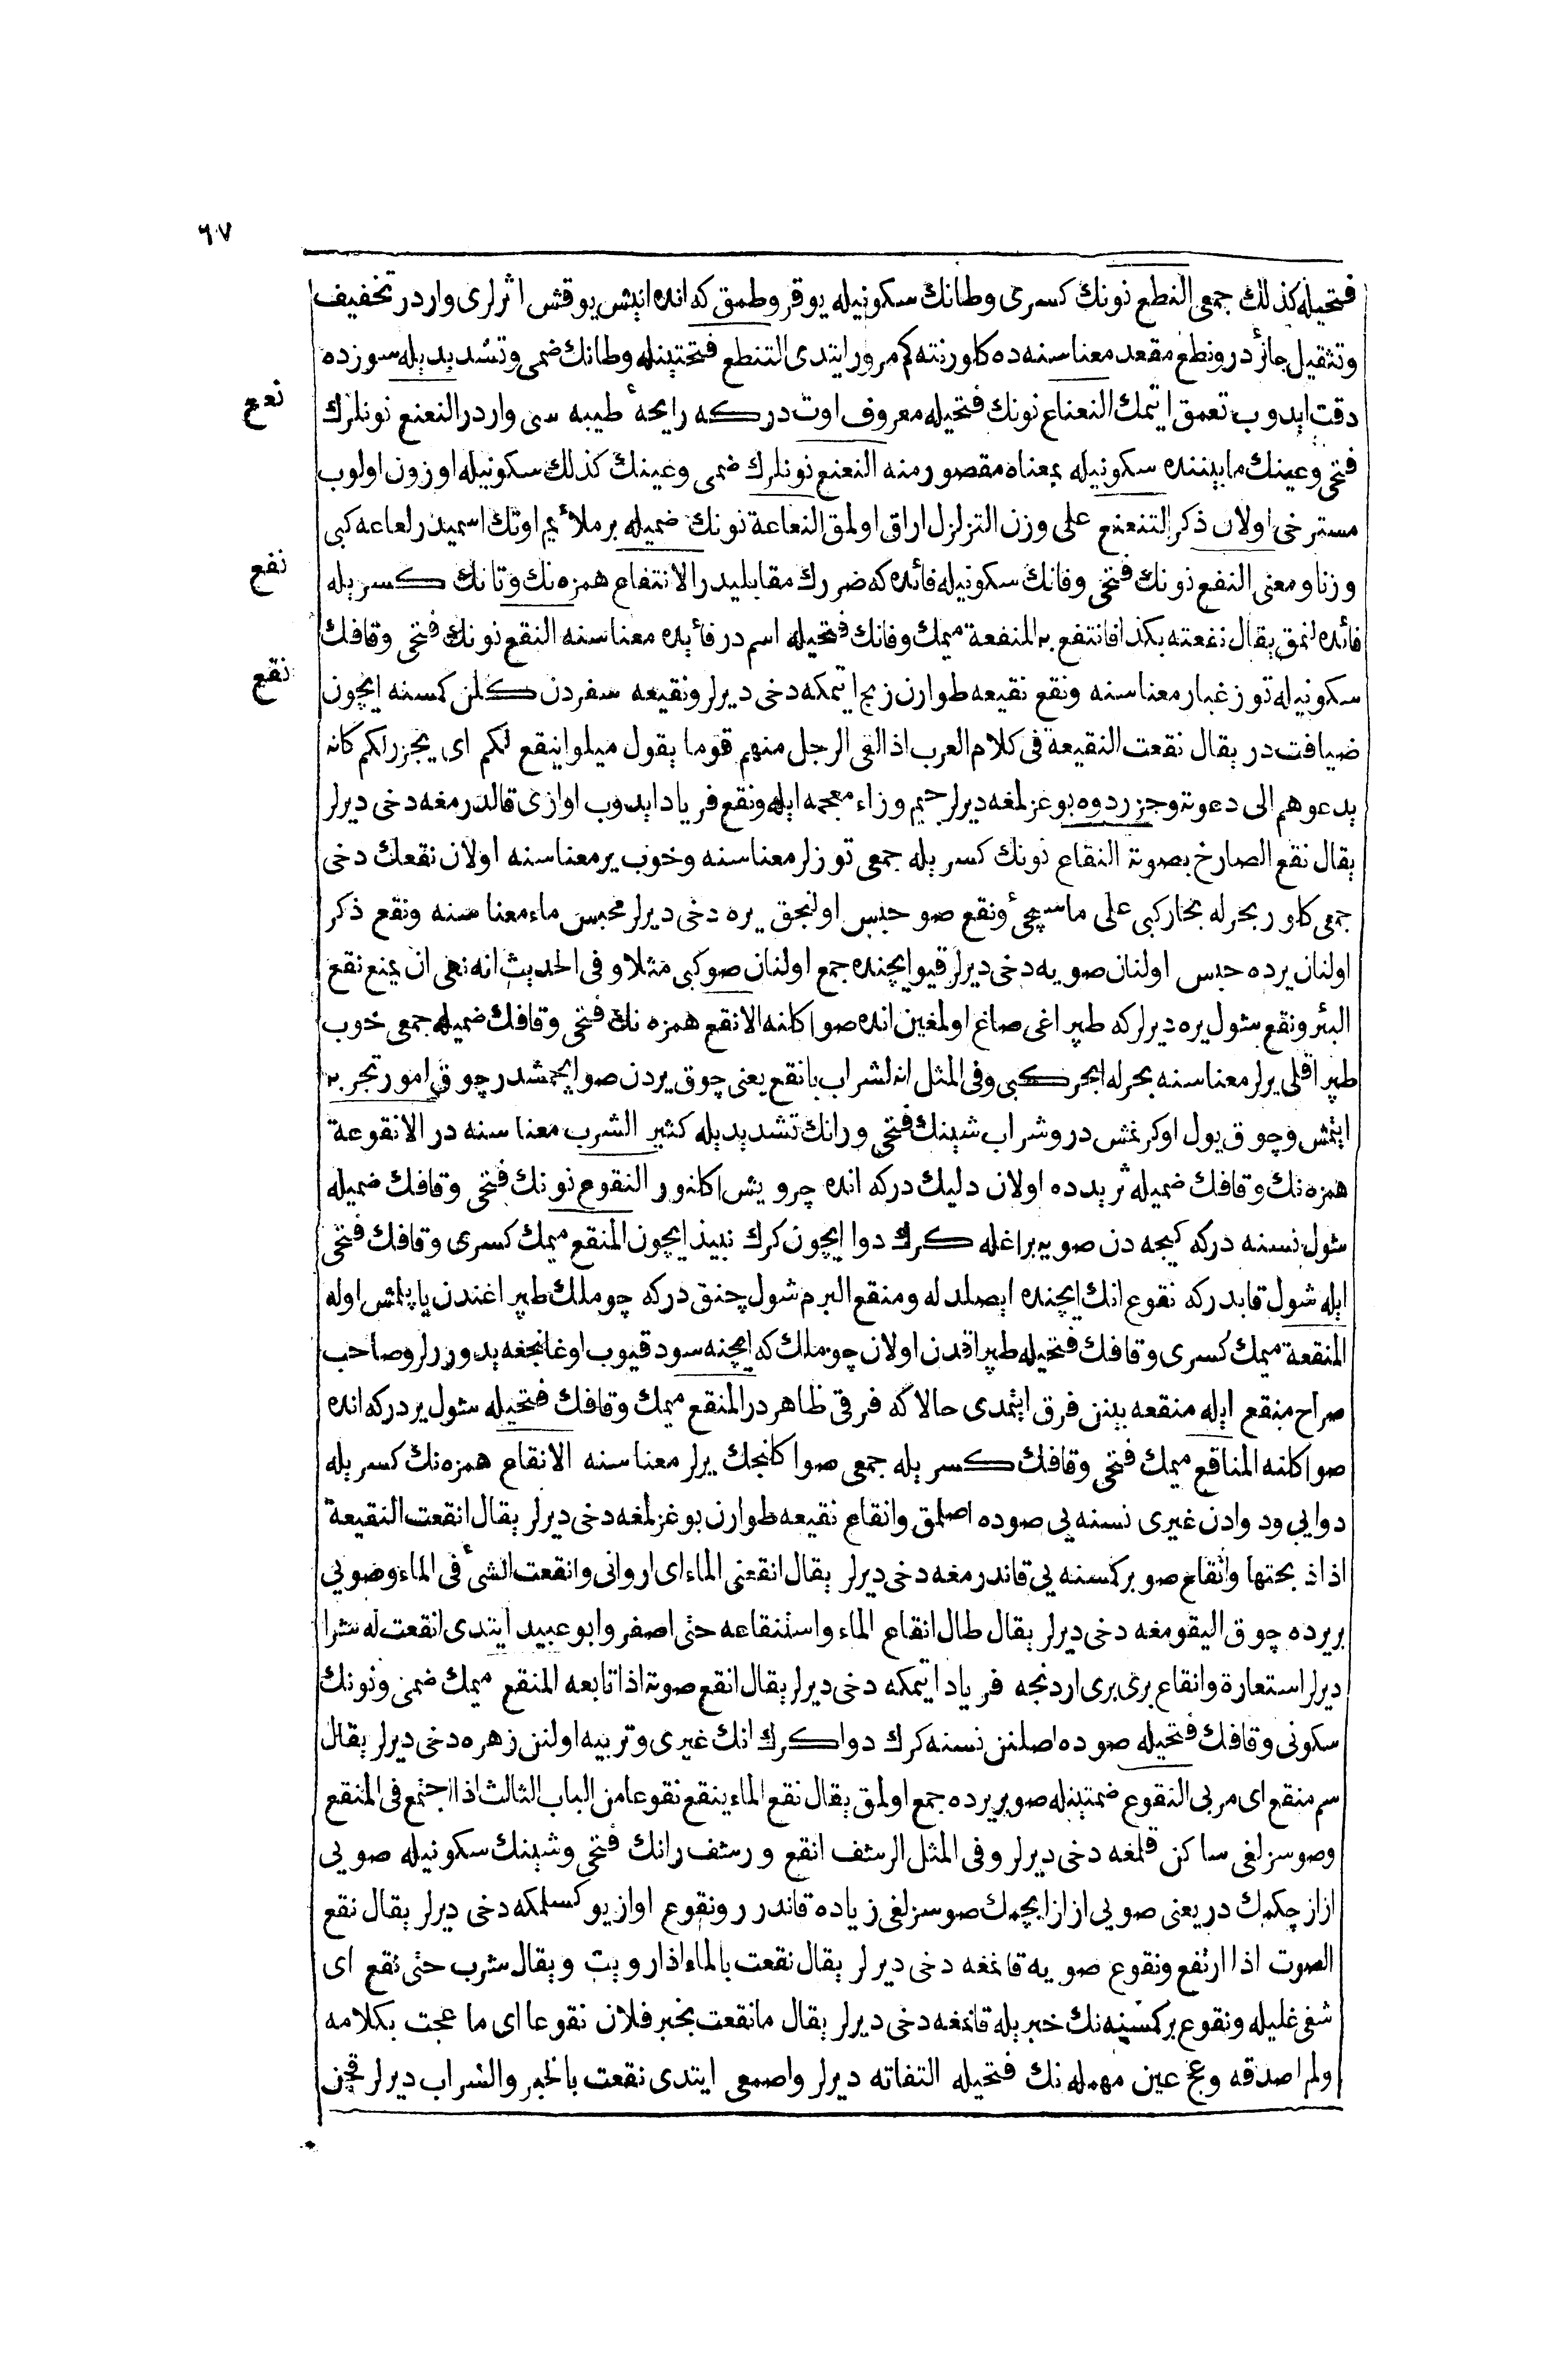 ٦٠٧
فتحيله كذلك جمعى النطع نونك كسرى وطانك سكونيله يوقرو طمق كه انده انيش يوقش اثرلرى واردر تخفيف
وتثقيل جائزدر ونطع مقعد معناسنه ده كلور نته كم مرور ايتدى التنطع فتحتينله وطانك ضمى وتشديديله سوزده
دقت ايدوب تعمق ايتمك النعناع نونك فتحيله معروف اوت دركه رايحهٔ طيبه سى واردر النعنع نونلرك
نعع
فتحى وعينك مابيننده سكونيله بمعناه مقصور منه النعنع نونلرك ضمى وعينك كذلك سكونيله اوزون اولوب
مسترخى اولان ذكر التنعنع على وزن التزلزل اراق اولمق النعاعة نونك ضميله بر ملائم اوتك اسميدر لعاعه كبى
وزنا ومعنى النفع نونك فتحى وفانك سكونيله فائده كه ضررك مقابليدر الانتفاع همزه نك وتانك كسريله
نفع
فائده لنمق يقال نفعته بكذا فانتفع به المنفعة ميمك وفانك فتحيله اسم در فائده معناسنه النقع نونك فتحى وقافك
نقع
سكونيله توز غبار معناسنه ونقع نقيعه طوارن زبح ايتمكه دخى ديرلر ونقيعه سفردن كلن كمسنه ايچون
ضيافت در يقال نقعت النقيعة فى كلام العرب اذا لقى الرجل منهم قوما يقول ميلوا ينقع لكم اى يجزر لكم كانه
يدعوهم الى دعوته وجزر دوه بوغزلمغه ديرلر جيم وزاء معجمه ايله ونقع فرياد ايدوب اوازى قالدرمغه دخى ديرلر
يقال نقع الصارخ بصوته النقاع نونك كسريله جمعى توزلر معناسنه وخوب ير معناسنه اولان نقعك دخى
جمعى كلور بحرله بحار كبى على ما سيجئ ونقع صو حبس اولنجق يره دخى ديرلر محبس ماء معناسنه ونقع ذكر
اولنان يرده حبس اولنان صويه دخى ديرلر قيو ايچنده جمع اولنان صو كبى مثلا وفى الحديث انه نهى ان يمنع نقع
البئر ونقع شول يره ديرلر كه طپراغى صاغ اولمغين انده صو اكلنه الانقع همزه نك فتحى وقافك ضميله جمعى خوب
طپراقلى يرلر معناسنه بحرله ابحر كبى وفى المثل انه لشراب بانقع يعنى چوق يردن صو ايچمشدر چوق امور تجربه
ايتمش وچوق يول اوكرنمش در وشراب شينك فتحى ورانك تشديديله كثير الشرب معناسنه در الانقوعة
همزه نك وقافك ضميله ثريدده اولان دليك دركه انده چرويش اكلنور النقوع نونك فتحى وقافك ضميله
شول نسنه دركه كيجه دن صويه براغله كرك دوا ايچون كرك نبيذ ايچون المنقع ميمك كسرى وقافك فتحى
ايله شول قابدركه نقوع انك ايچنده ايصلدله ومنقع البرم شول چنق دركه چوملك طپراغندن ياپلمش اوله
المنقعة ميمك كسرى وقافك فتحيله طپراقدن اولان چوملك كه ايچنه سود قيوب اوغلانجغه يدورلر وصاحب
صراح منقع ايله منقعه بينن فرق ايتمدى حالا كه فرقى ظاهردر المنقع ميمك وقافك فتحيله شول يردركه انده
صو اكلنه المناقع ميمك فتحى وقافك كسريله جمعى صو اكلنجك يرلر معناسنه الانقاع همزه نك كسريله
دوايى ودوادن غيرى نسنه يى صوده اصلمق وانقاع نقيعه طوارن بوغزلمغه دخى ديرلر يقال انقعت النقيعة
اذا ذبحتها وانقاع صو بر كمسنه يى قاندرمغه دخى ديرلر يقال انقعنى الماء اى اروانى وانقعت الشئ فى الماء وصويى
بر يرده چوق اليقومغه دخى ديرلر يقال طال انقاع الماء واستنقاعه حتى اصفر وابو عبيد ايتدى انقعت له شرا
ديرلر استعارة وانقاع برى برى اردنجه فرياد ايتمكه دخى ديرلر يقال انقع صوته اذا تابعه المنقع ميمك ضمى ونونك
سكونى وقافك فتحيله صوده اصلنن نسنه كرك دوا كرك انك غيرى وتربيه اولنن زهره دخى ديرلر يقال
سم منقع اى مربى النقوع ضمتينله صو بر يرده جمع اولمق يقال نقع الماء ينقع نقوعا من الباب الثالث اذا اجتمع فى المنقع
وصوسزلغى ساكن قلمغه دخى ديرلر وفى المثل الرشف انقع ورشف رانك فتحى وشينك سكونيله صويى
ازاز چكمك در يعنى صويى ازاز ايچمك صوسزلغى زياده قاندرر ونقوع اواز يوكسلمكه دخى ديرلر يقال نقع
الصوت اذا ارتفع ونقوع صويه قانمغه دخى ديرلر يقال نقعت بالماء اذا رويت ويقال شرب حتى نقع اى
شفى غليله ونقوع بر كمسنه نك خبريله قانمغه دخى ديرلر يقال مانقعت بخبر فلان نقوعا اى ما عجت بكلامه
ولم اصدقه وعج عين مهمله نك فتحيله التفاته ديرلر واصمعى ايتدى نقعت بالخبر والشراب ديرلر قچن